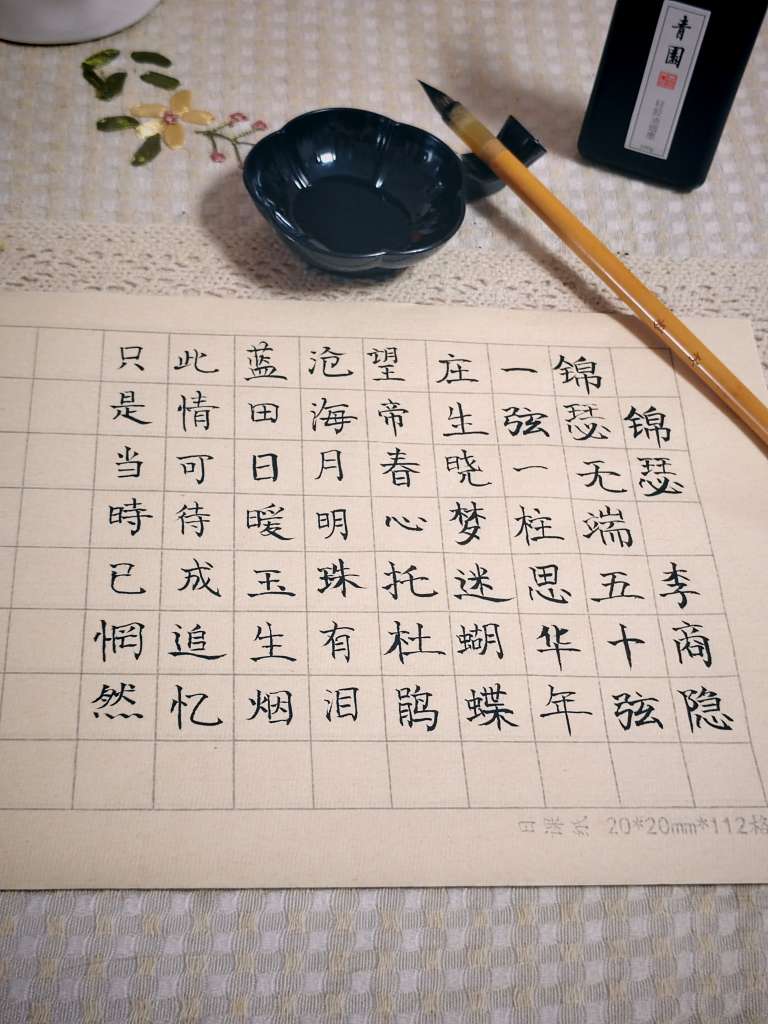 锦瑟 李商隐
锦瑟无端五十弦
一弦一柱思华年
庄生晓梦迷蝴蝶
望帝春心托杜鹃
沧海月明珠有泪
蓝田日暖玉生烟
此情可待成追忆
只是当時已惘然
20*20mm*112格
青園